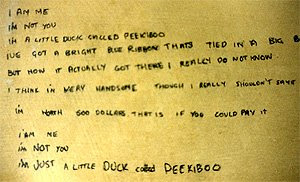 I AM ME
IM NOT YOU
IM A LITTLE DUCK CALLED PEEKIBOO
IVE GOT A BRIGHT BLUE RIBBON THATS TIED IN A BIG B
BUT HOW IT ACTUALLY GOT THERE I REALLY DO NOT KNOW
I THINK IM VERY HANDSOME THOUGH I REALLY SHOULDN'T SAYE
IM WORTH 500 DOLLARS THAT IS IF YOU COULD PAY IT
I AM ME
IM NOT YOU
IM JUST A LITTLE DUCK called PEEKIBOO